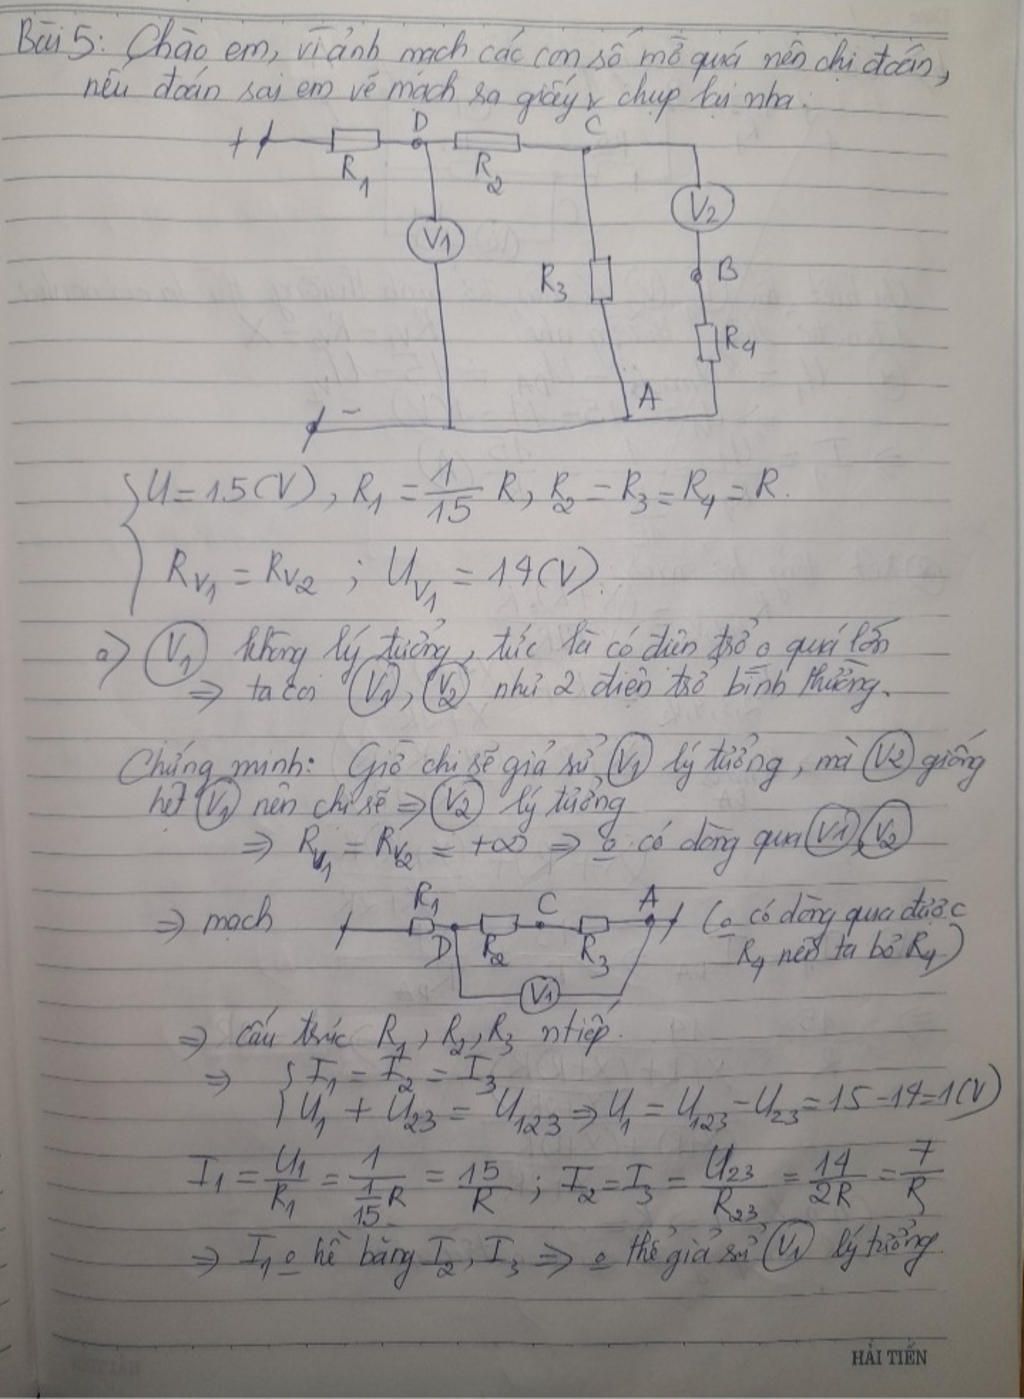 Bài 5: Chào em, vì ảnh mạch các con số mờ quá nên chị đoán,
nếu đoán sai em vẽ mạch ra giấy r chụp lại nha.
+ R1 D R2 C
V1 V2
R3 B
R4
- A
{ U = 15 (V), R1 = 1/15 R, R2 = R3 = R4 = R.
RV1 = RV2 ; UV1 = 14 (V).
a) (V1) không lý tưởng, tức là có điện trở o quá lớn
⇒ ta coi (V1), (V2) như 2 điện trở bình thường.
Chứng minh: Giờ chị sẽ giả sử (V1) lý tưởng, mà (V2) giống
hệt (V1) nên chị sẽ ⇒ (V2) lý tưởng
⇒ RV1 = RV2 = +∞ ⇒ o có dòng qua (V1), (V2)
⇒ mạch R1 D R2 C R3 A V1 (o có dòng qua được
R4 nên ta bỏ R4)
⇒ cấu trúc R1, R2, R3 ntiếp.
⇒ { I1 = I2 = I3
U1 + U23 = U123 ⇒ U1 = U123 - U23 = 15 - 14 = 1 (V)
I1 = U1/R1 = 1/(1/15 R) = 15/R ; I2 = I3 = U23/R23 = 14/2R = 7/R
⇒ I1 o hề bằng I2, I3 ⇒ o thể giả sử (V1) lý tưởng.
HẢI TIẾN